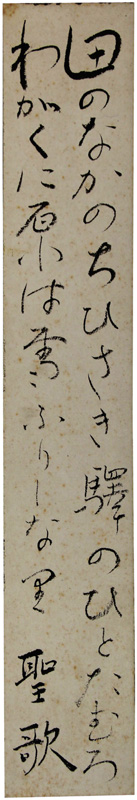 田のなかのちひさき驛のひとたむろ
わがくに石小は雪ふりしなり
聖歌